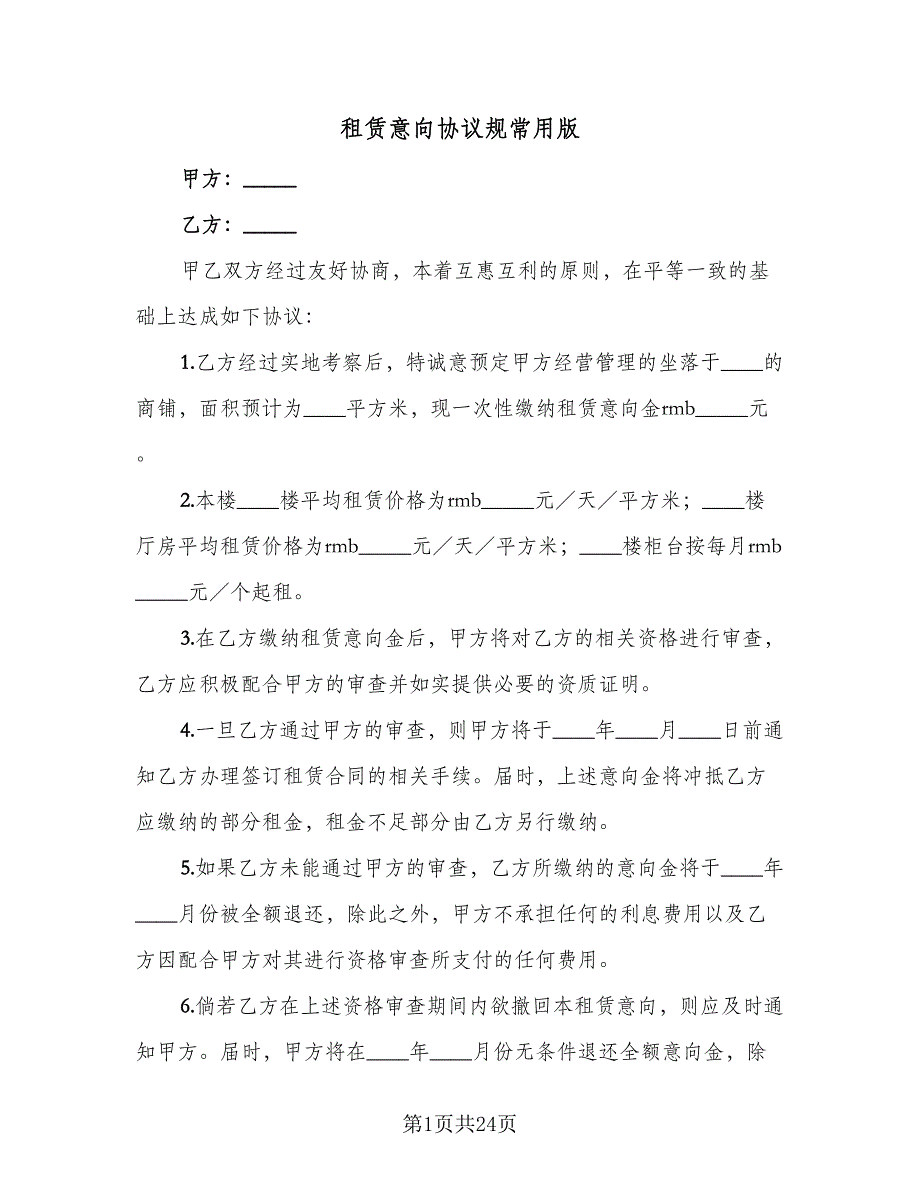 租赁意向协议规常用版
甲方：_____
乙方：_____
甲乙双方经过友好协商，本着互惠互利的原则，在平等一致的基
础上达成如下协议：
1.乙方经过实地考察后，特诚意预定甲方经营管理的坐落于____的
商铺，面积预计为____平方米，现一次性缴纳租赁意向金rmb_____元
。
2.本楼____楼平均租赁价格为rmb_____元／天／平方米；____楼
厅房平均租赁价格为rmb_____元／天／平方米；____楼柜台按每月rmb
_____元／个起租。
3.在乙方缴纳租赁意向金后，甲方将对乙方的相关资格进行审查，
乙方应积极配合甲方的审查并如实提供必要的资质证明。
4.一旦乙方通过甲方的审查，则甲方将于____年____月____日前通
知乙方办理签订租赁合同的相关手续。届时，上述意向金将冲抵乙方
应缴纳的部分租金，租金不足部分由乙方另行缴纳。
5.如果乙方未能通过甲方的审查，乙方所缴纳的意向金将于____年
____月份被全额退还，除此之外，甲方不承担任何的利息费用以及乙
方因配合甲方对其进行资格审查所支付的任何费用。
6.倘若乙方在上述资格审查期间内欲撤回本租赁意向，则应及时通
知甲方。届时，甲方将在____年____月份无条件退还全额意向金，除
第1页共24页